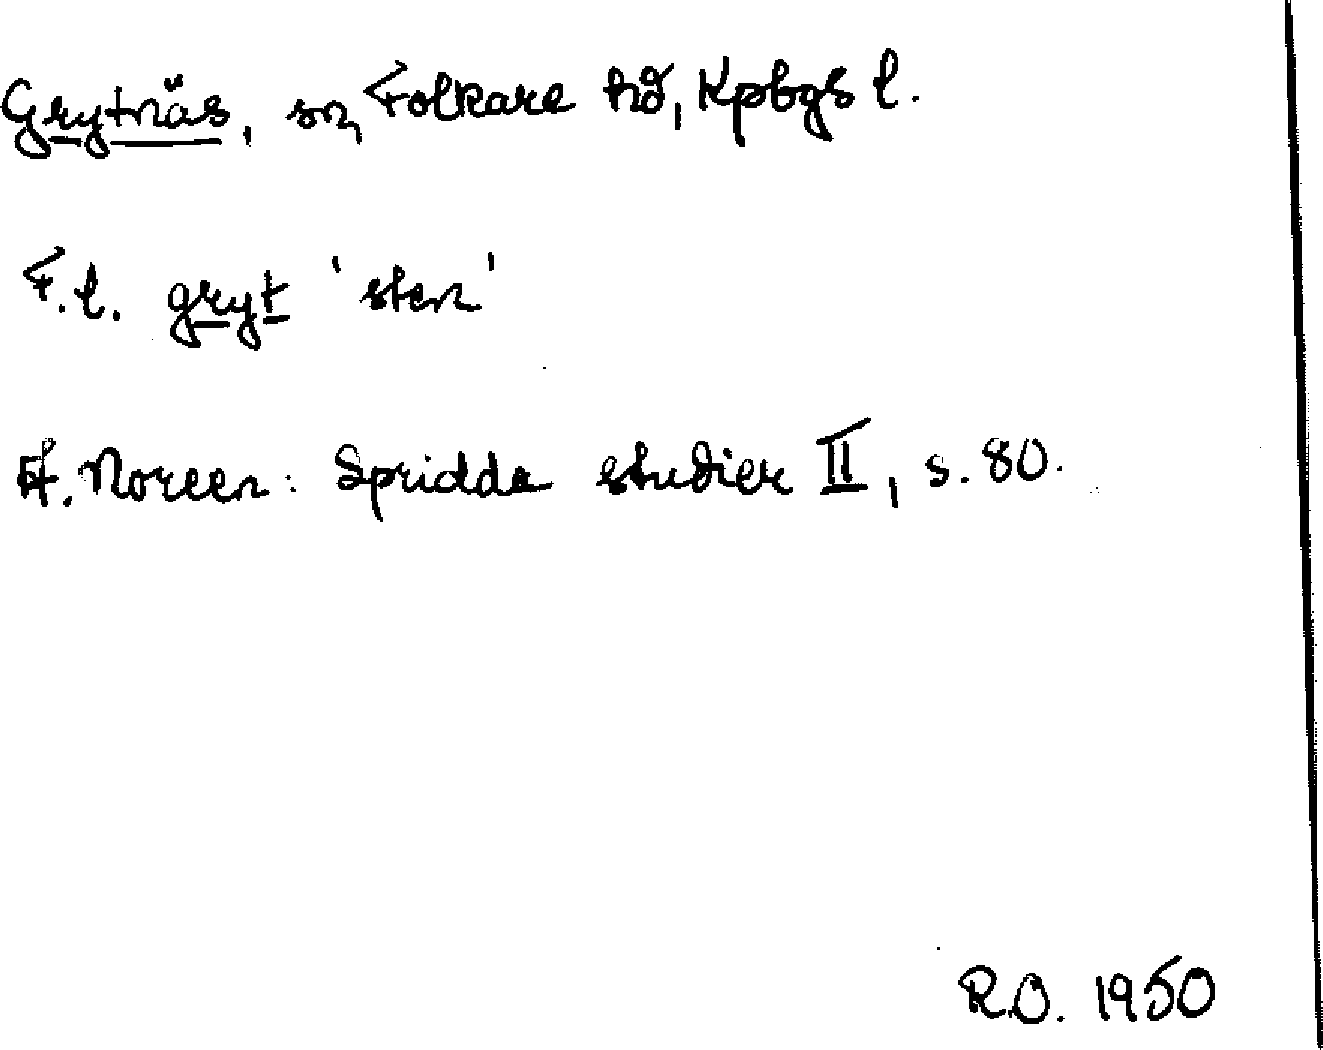 Grytnäs, sn, Folkare hd, Kpbgs l.
F.l. gryt 'sten'
A. Noreen: Spridda studier II, s. 80.
R.O. 1950